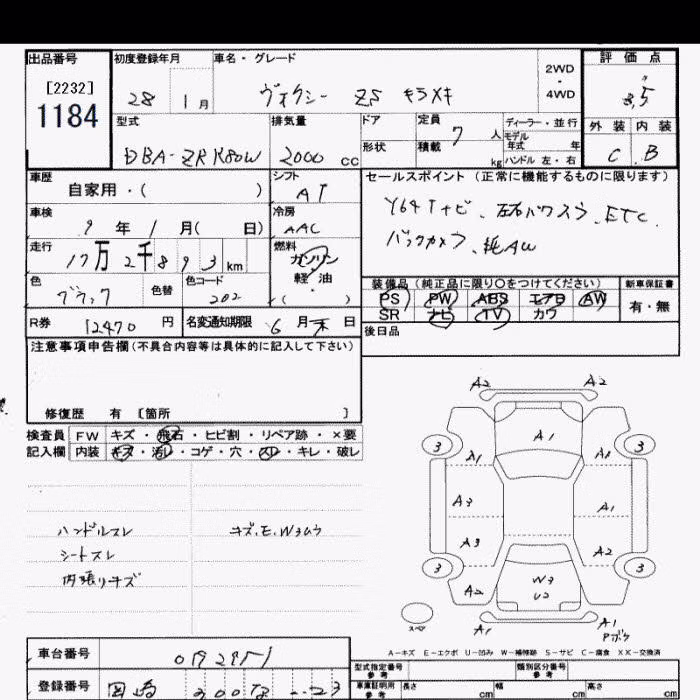 出品番号
[2232]
1184
初度登録年月
28 1月
車名・グレード
ヴォクシー ZS キラメキ
2WD
・
4WD
評価点
3.5
外装 内装
C B
型式
DBA-ZRR80W
排気量
2000 cc
ドア
形状
定員
7 人
積載
kg
ディーラー・並行
モデル
年式 年
ハンドル 左・右
車歴
自家用・( )
シフト
AT
車検
9年 1月( 日)
冷房
AAC
走行
17万2千893km
燃料
ガソリン
・
軽・油
( )
色
ブラック
色替
色コード
202
セールスポイント (正常に機能するものに限ります)
Y64Tナビ、左右パワスラ、ETC
バックカメラ、純AW
装備品 (純正品に限り○をつけてください)
PS PW ABS エアB AW
SR ナビ TV カワ
新車保証書
有・無
R券
12470 円
名変通知期限
6月末日
後日品
注意事項申告欄(不具合内容等は具体的に記入して下さい)
修復歴 有 〔箇所 〕
検査員
記入欄
FW キズ・飛石・ヒビ割・リペア跡・×要
内装 キズ・汚レ・コゲ・穴・スレ・キレ・破レ
ハンドルスレ
シートスレ
内張りキズ
キズ、E、Wヶムラ
A2 A2
A1
3 3
A1 A1
A3 A1
A3 A2
3 3
A2 W3
U2
A1
A1
Pボケ
スペア
A-キズ E-エクボ U-凹み W-補修跡 S-サビ C-腐食 XX-交換済
車台番号
0192951
登録番号
岡崎 300 な ・・23
型式指定番号
参考
類別区分番号
参考
車庫証明用
参考
長さ cm
幅 cm
高さ cm